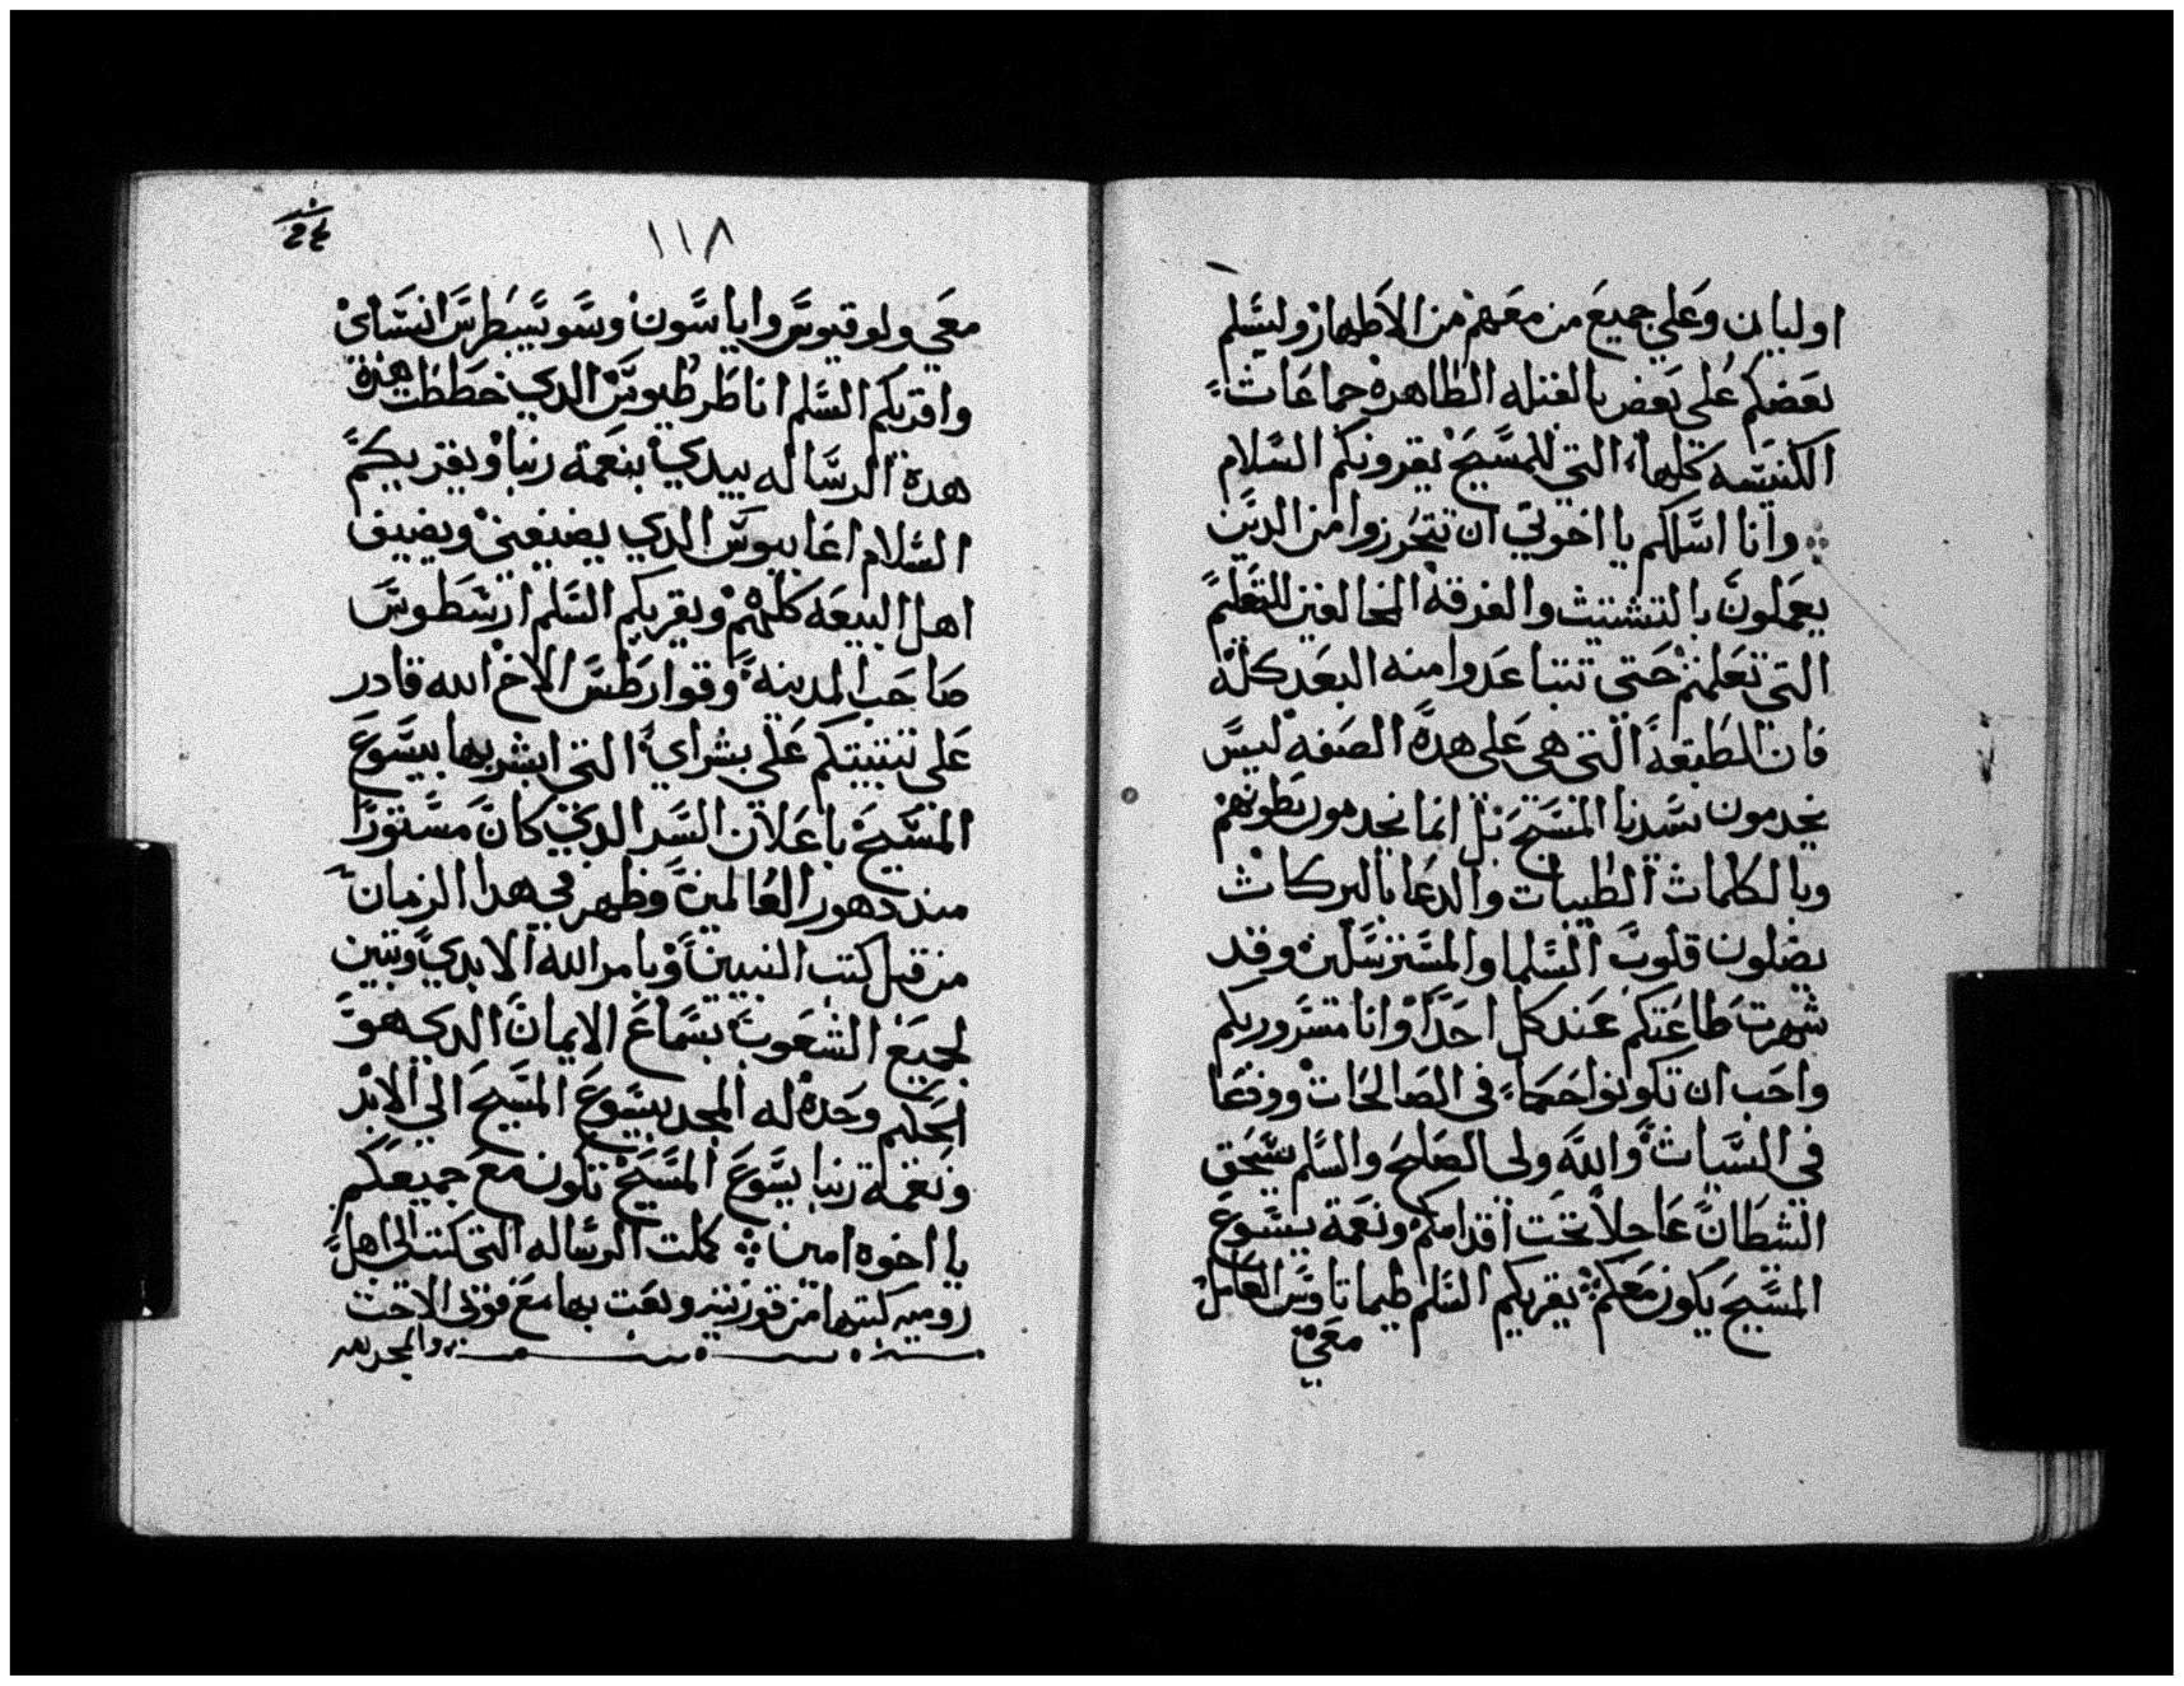 اولبيان وعلي جميع من معهم من الاطهار وليسلم
بعضكم على بعض بالقبله الطاهره جماعات
الكنيسه كلها التي للمسيح يقرونكم السلام
وانا اسلكم يا اخوتي ان تتحرزوا من الدين
يعملون بالتشتيت والفرقه المخالفين للتعلم
التي تعلمتم حتى تتباعدوا منه البعد كله
فان الطبقة التي هي على هده الصفه ليس
يخدمون سيدنا المسيح بل انما يخدمون بطونهم
وبالكلمات الطيبات والدعا بالبركات
يضلون قلوب السلما والمسترسلين وقد
شهرت طاعتكم عند كل احد وانا مسرور بكم
واحب ان تكونوا حكما في الصالحات وودعا
في السيات والله ولى الصلح والسلم يسحق
الشطان عاجلا تحت اقدامكم ونعمة يسوع
المسيح يكون معكم يقريكم السلم طيماتاوس العامل
معي
١١٨
معي ولوقيوس واياسون وسوسيبطرس انسباى
واقريكم السلم انا طرطيوس الدي خططت هده
هدة الرساله بيدي بنعمة ربنا ويقريكم
السلام اغاييوس الدي يضيفني ويضيف
اهل البيعه كلهم ويقريكم السلم ارسطوس
صاحب المدينه وقوارطس الاخ الله قادر
على تثبيتكم على بشراي التي ابشر بها بيسوع
المسيح باعلان السر الدي كان مستورا
مند دهور العالمين وظهر في هدا الزمان
من قبل كتب النبيين وبامر الله الابدي وتبين
لجميع الشعوب بسماع الايمان الدي هو
الحكيم وحده له المجد بيسوع المسيح الي الابد
ونعمة ربنا يسوع المسيح تكون مع جميعكم
يا اخوه امين كملت الرساله التي كتبت الى اهل
روميه كتبها من قورنتيه وبعت بها مع فوني الاخت
والمجد لله